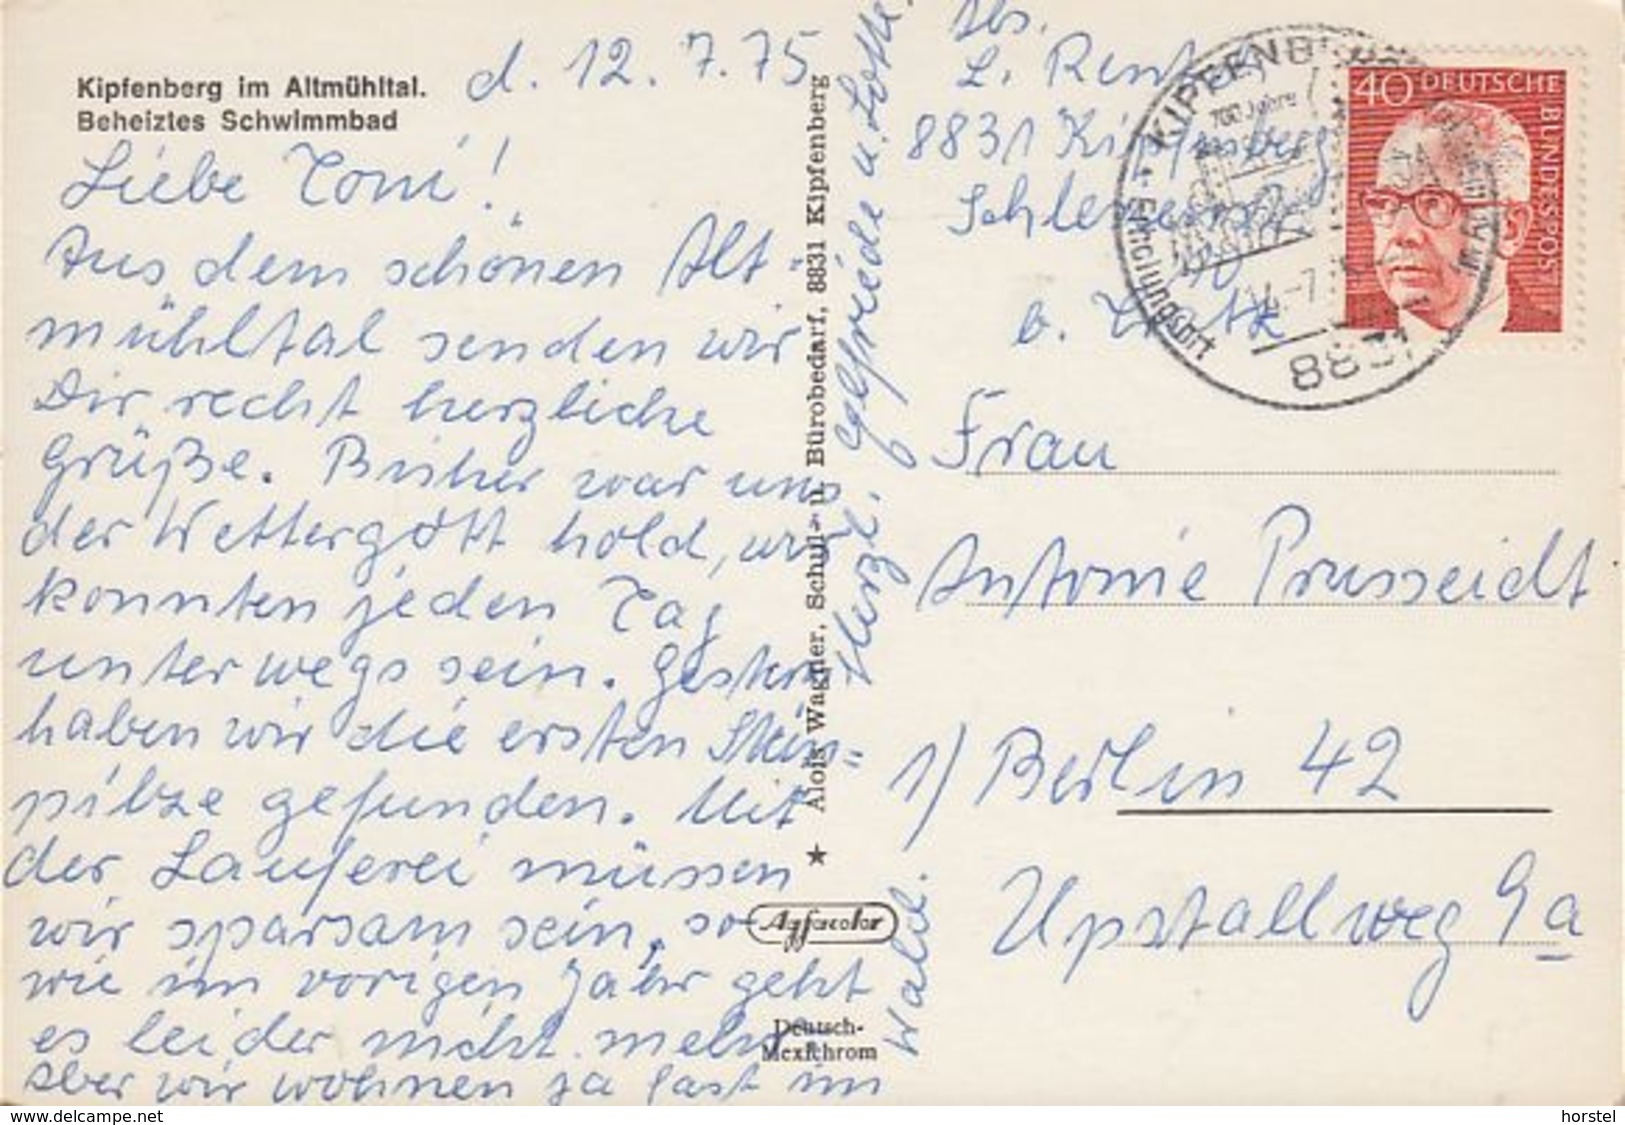 Kipfenberg im Altmühltal.
Beheiztes Schwimmbad
d. 12.7.75
Liebe Toni!
Aus dem schönen Alt-
mühltal senden wir
Dir recht herzliche
Grüße. Bisher war uns
der Wettergott hold, wir
konnten jeden Tag
unterwegs sein. Gestern
haben wir die ersten Stein=
pilze gefunden. Mit
der Lauferei müssen
wir sparsam sein, so
wie im vorigen Jahr geht
es leider nicht mehr.
Aber wir wohnen ja fast im
Wald.
Herzl.
Elfriede u. Lotte.
Alois Wagner, Schul- u. Bürobedarf, 8831 Kipfenberg
★
Agfacolor
Deutsch-
Mexichrom
Abs.
L.
8831 Kipfenberg
b.
KIPFENBERG
700 Jahre
Erholungsort
8831
40 DEUTSCHE
BUNDESPOST
Frau
Antonie Prusseidt
1) Berlin 42
Upstallweg 9a
www.delcampe.net
horstel